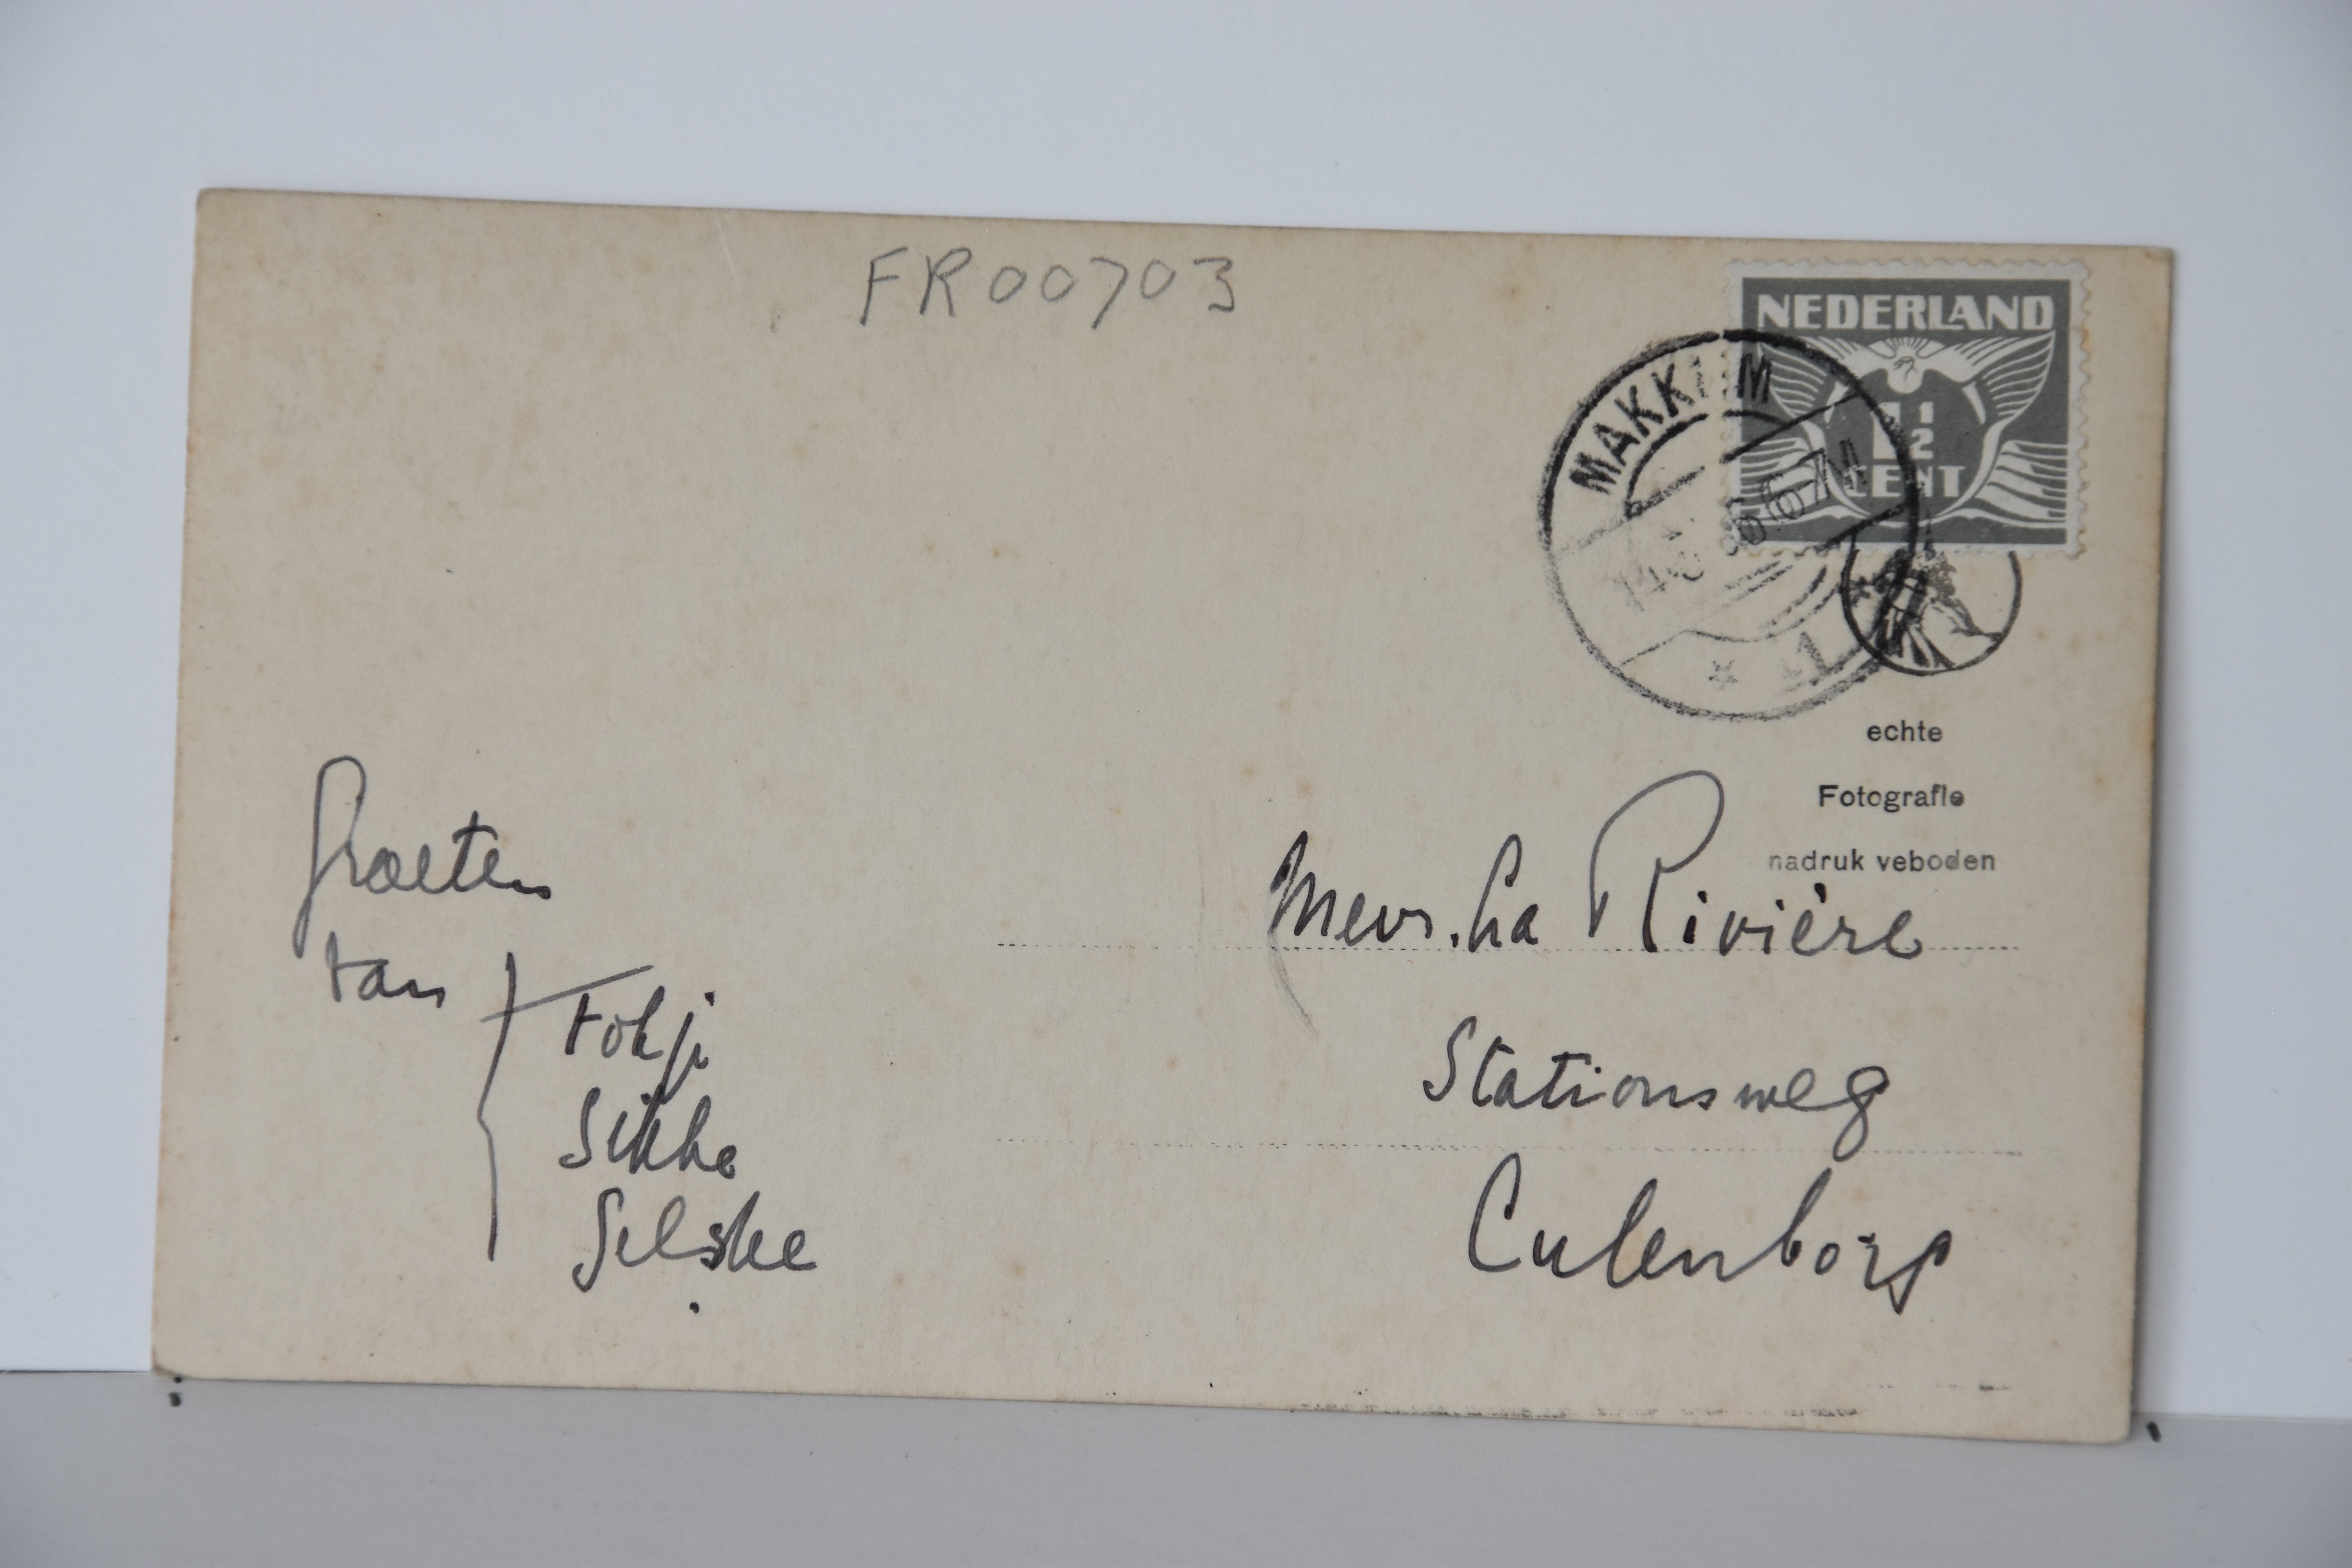 FR00703
NEDERLAND
1 1/2
CENT
MAKKUM
1
echte
Fotografie
nadruk veboden
Groeten
van
Fokje
Sikke
Mevr. La Rivière
Stationsweg
Culenborg